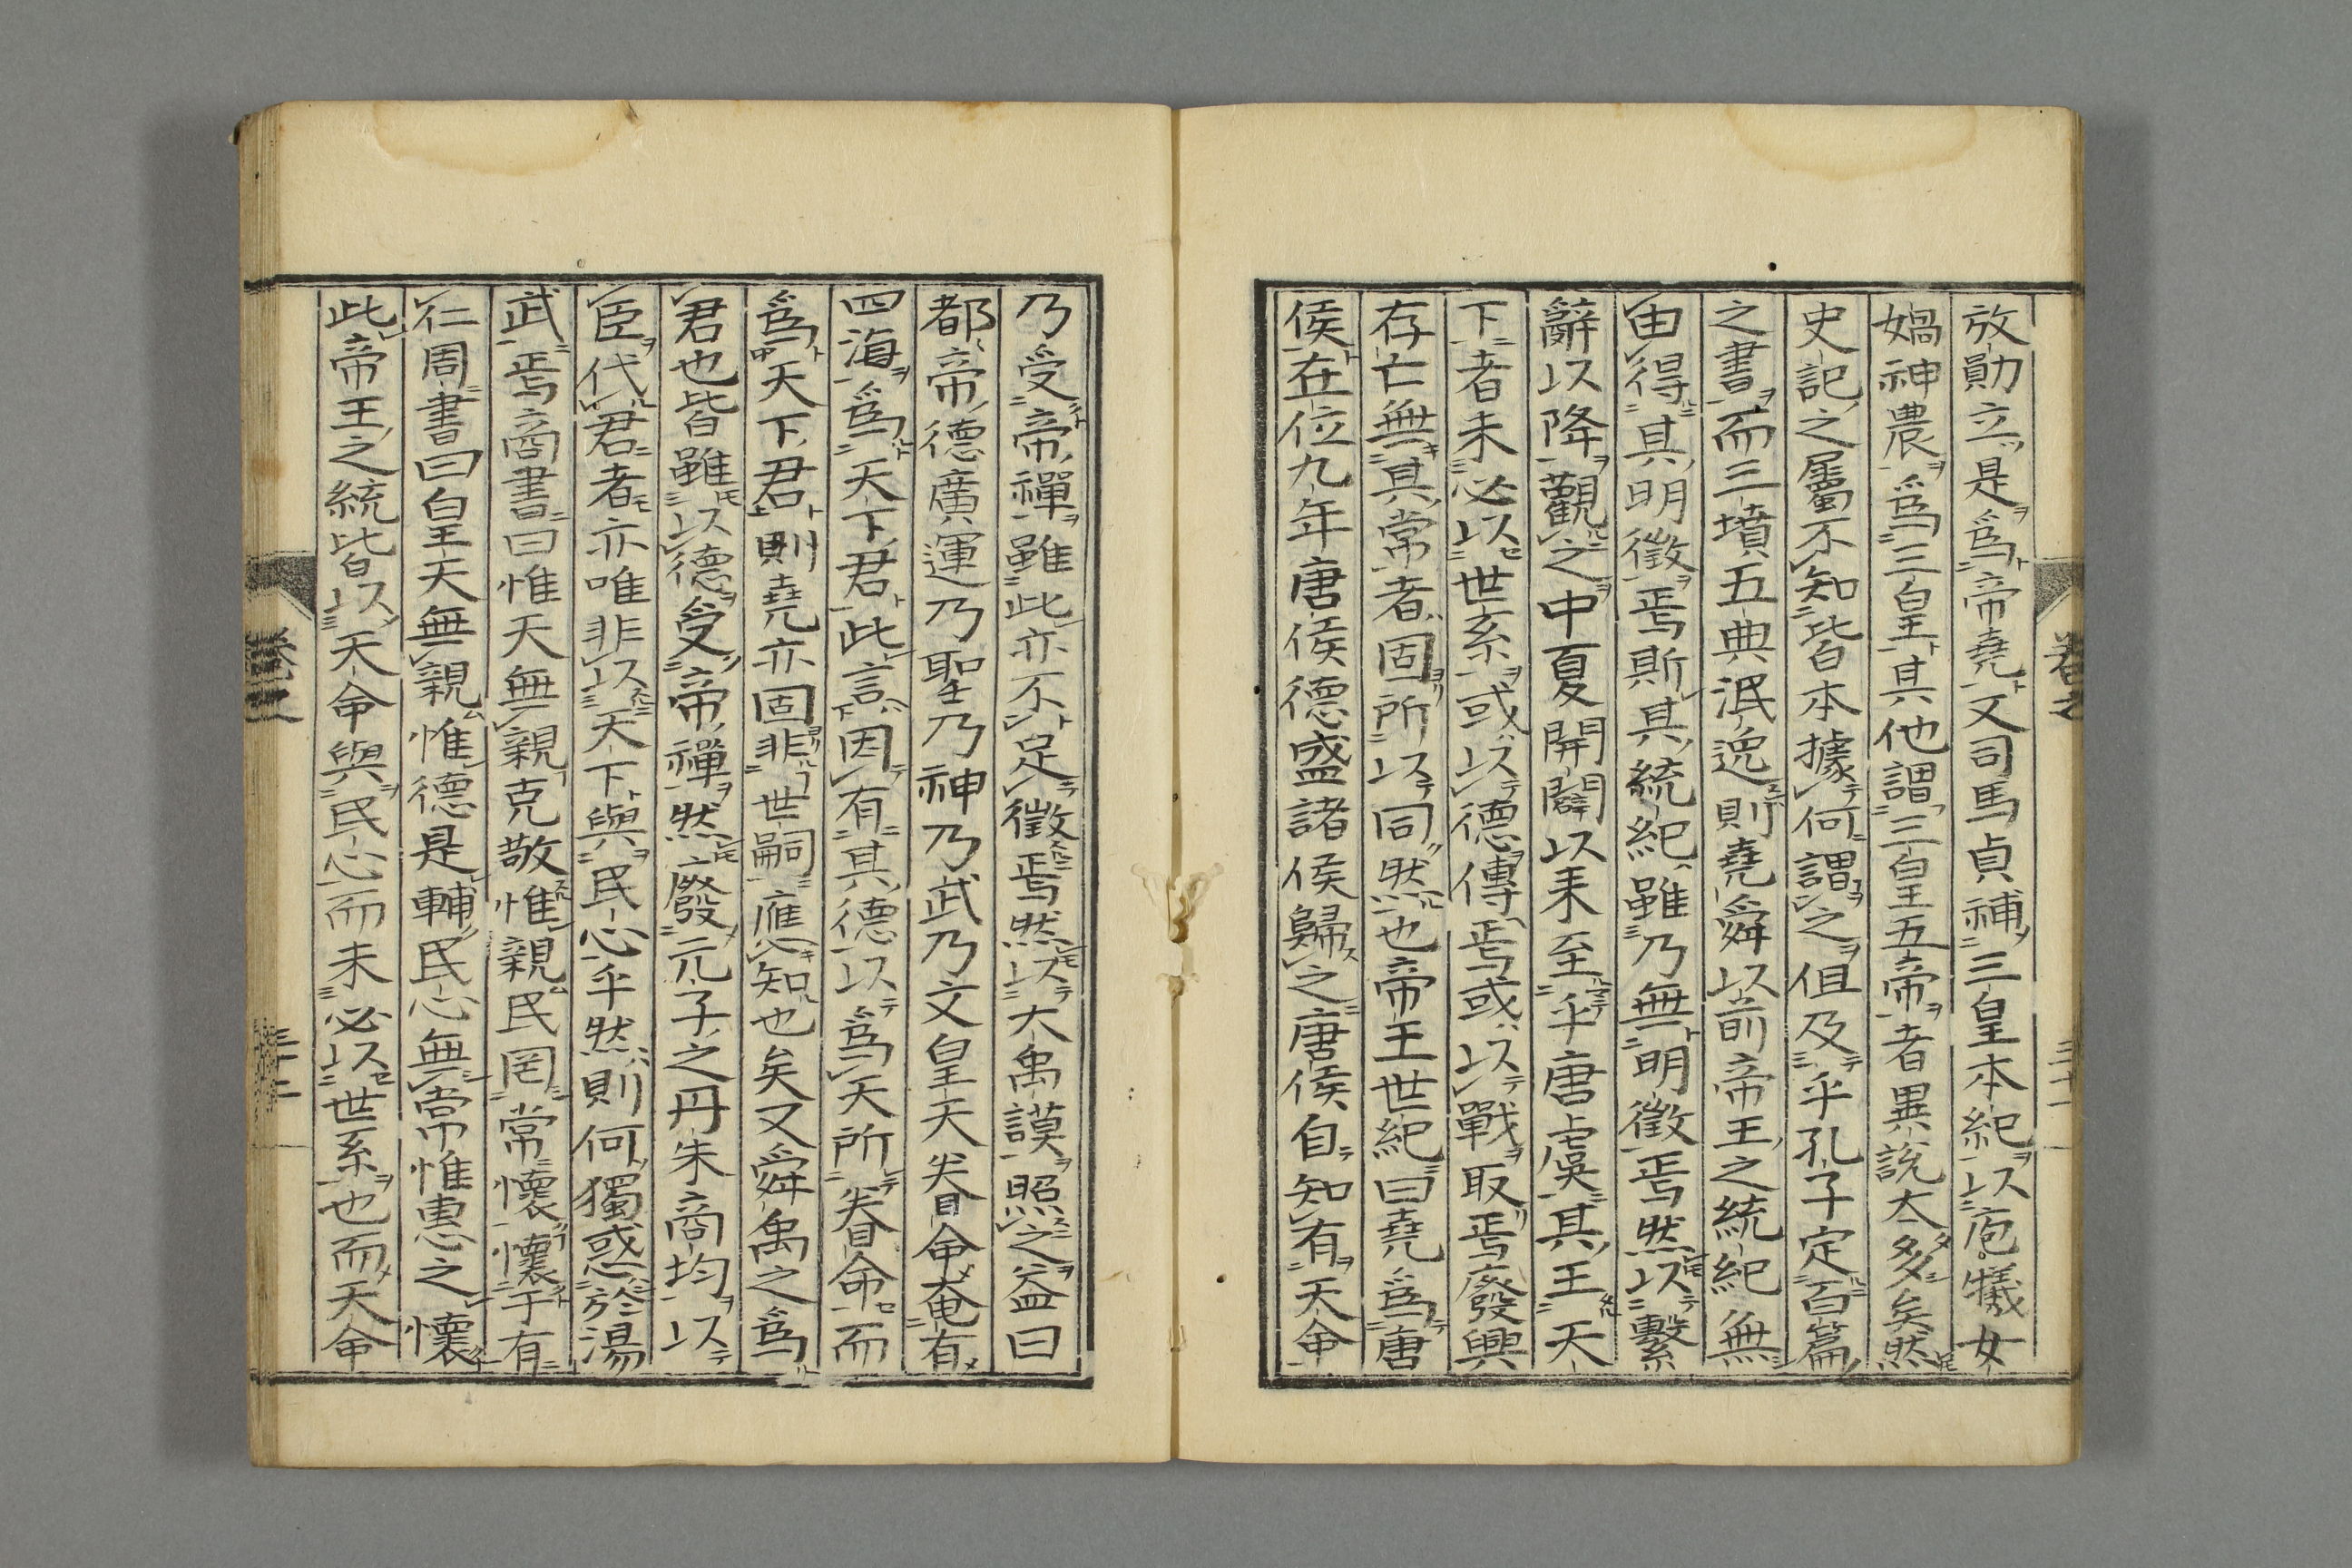 放勛立是爲帝堯又司馬貞補三皇本紀以庖犧女
媧神農爲三皇其他謂三皇五帝者異說太多矣然
史記之屬不知皆本據何謂之但及乎孔子定百篇
之書而三墳五典泯逸則堯舜以前帝王之統紀無
由得其明徵焉斯其統紀雖乃無明徵焉然以繫
辭以降觀之中夏開闢以来至乎唐虞其王天
下者未必以世系或以德傳焉或以戰取焉廢興
存亡無其常者固所以同然也帝王世紀曰堯爲唐
侯在位九年唐侯德盛諸侯歸之唐侯自知有天命
乃受帝禪雖此亦不足徵焉然以大禹謨照之益曰
都帝德廣運乃聖乃神乃武乃文皇天眷命奄有
四海爲天下君此言因有其德以爲天所眷命而
爲天下君則堯亦固非世嗣應知也矣又舜禹之爲
君也皆雖以德受帝禪然廢元子之丹朱商均以
臣代君者亦唯非以天下與民心乎然則何獨惑於湯
武焉商書曰惟天無親克敬惟親民罔常懷懷于有
仁周書曰皇天無親惟德是輔民心無常惟惠之懷
此帝王之統皆以天命與民心而未必以世系也而天命